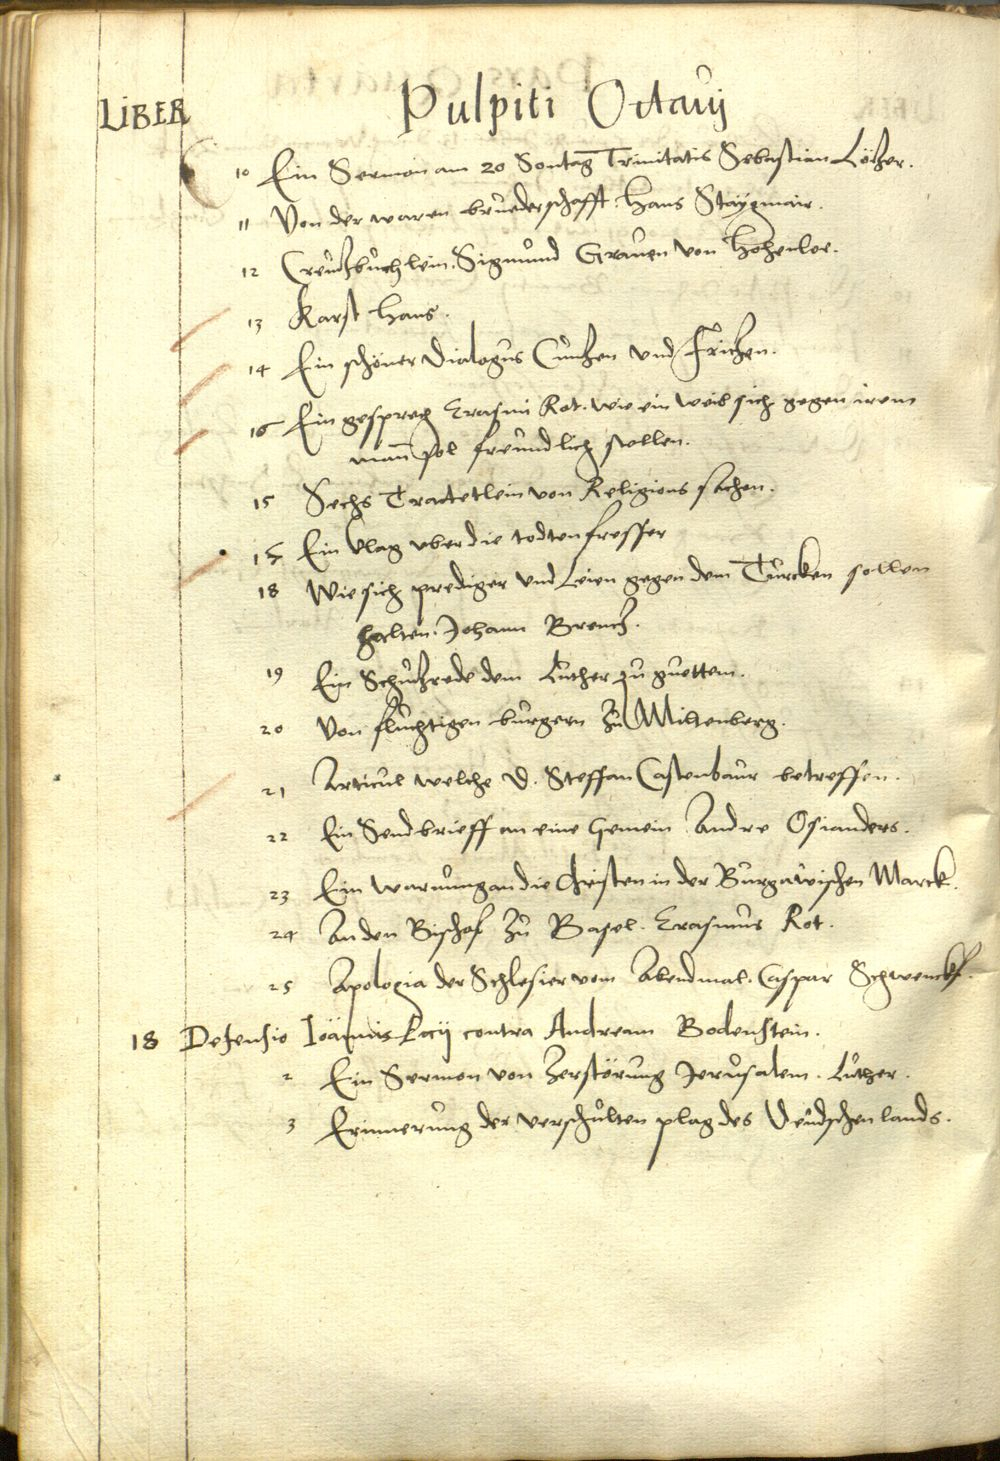 LIBER
Pulpiti Octavij
10 Ein Sermon am 20 Sontag Trinitatis Sebastian Lötzer.
11 Von der waren bruederschafft Hans Staygmair.
12 Creutzbüchlein. Sigmund Grauen von Hohenloe.
13 Karst Hans.
14 Ein schöner Dialogus Cuntzen und Fritzen.
16 Ein gesprech Erasmi Rot. wie ein weib sich gegen irem
man sol freundlich stellen.
15 Sechs Tractetlein von Religions sachen.
Ein Clag uber die todtenfresser
18 Wie sich prediger und Leien gegen dem Türcken sollen
halten. Johann Brentz.
19 Ein Schutzrede dem Luther zu guettem.
20 Von fluchtigen burgern zu Miltenberg.
21 Articul welche D. Steffan Castenbaur betreffen.
22 Ein Sendbrieff an eine Gemein Andre Osianders.
23 Ein warnung an die Christen in der Burgawischen Marck.
24 An den Bischof zu Basel. Erasmus Rot.
25 Apologia der Schlesier vom Abendmal. Caspar Schwenckf.
18 Defensio Ioannis Eccij contra Andream Bodenstein.
2 Ein Sermon von Zerstörung Jerusalem. Luther.
3 Erinnerung der verschulten plag des Deudschenlands.